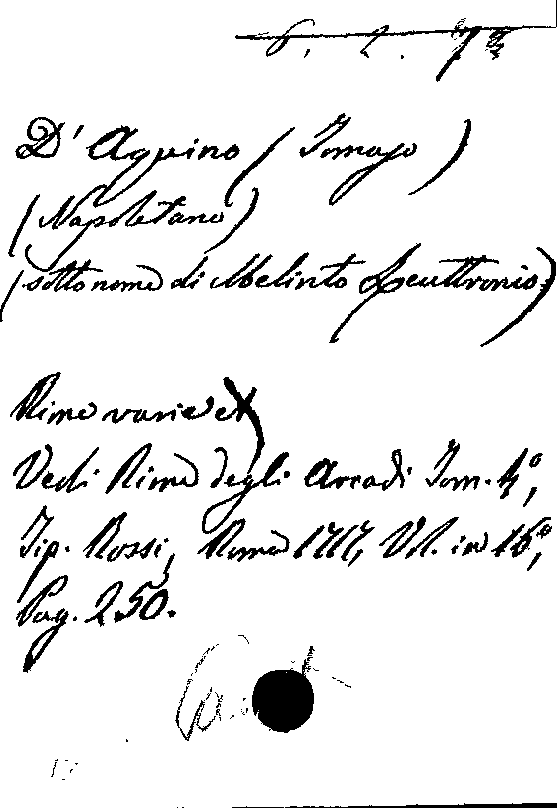 6. 2. 73
D' Aquino (Tomaso)
(Napoletano)
(sotto nome di Melinto Leuttronio)
Rime varie
Vedi Rime degli Arcadi Tom. 4º,
Tip. Rossi, Roma 1717, Vol. in 16º,
Pag. 250.